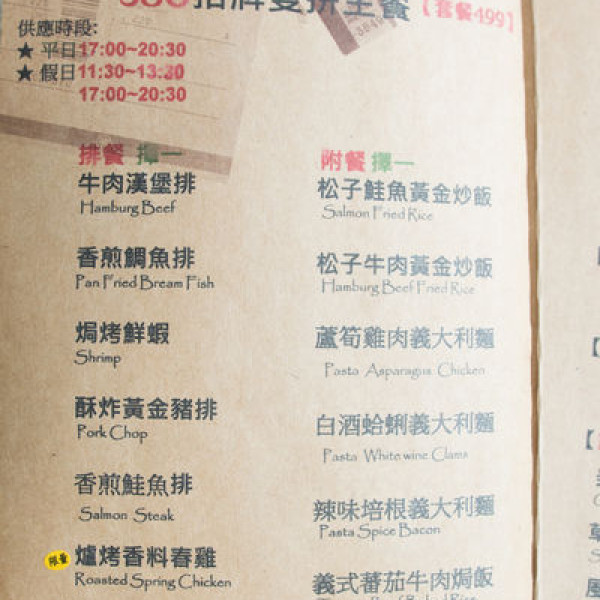 招牌雙拼主餐【套餐499】
供應時段:
★ 平日17:00~20:30
★ 假日11:30~13:30
17:00~20:30
排餐 擇一
牛肉漢堡排
Hamburg Beef
香煎鯛魚排
Pan Fried Bream Fish
焗烤鮮蝦
Shrimp
酥炸黃金豬排
Pork Chop
香煎鮭魚排
Salmon Steak
限量 爐烤香料春雞
Roasted Spring Chicken
附餐 擇一
松子鮭魚黃金炒飯
Salmon Fried Rice
松子牛肉黃金炒飯
Hamburg Beef Fried Rice
蘆筍雞肉義大利麵
Pasta Asparagus Chicken
白酒蛤蜊義大利麵
Pasta White wine Clams
辣味培根義大利麵
Pasta Spice Bacon
義式蕃茄牛肉焗飯